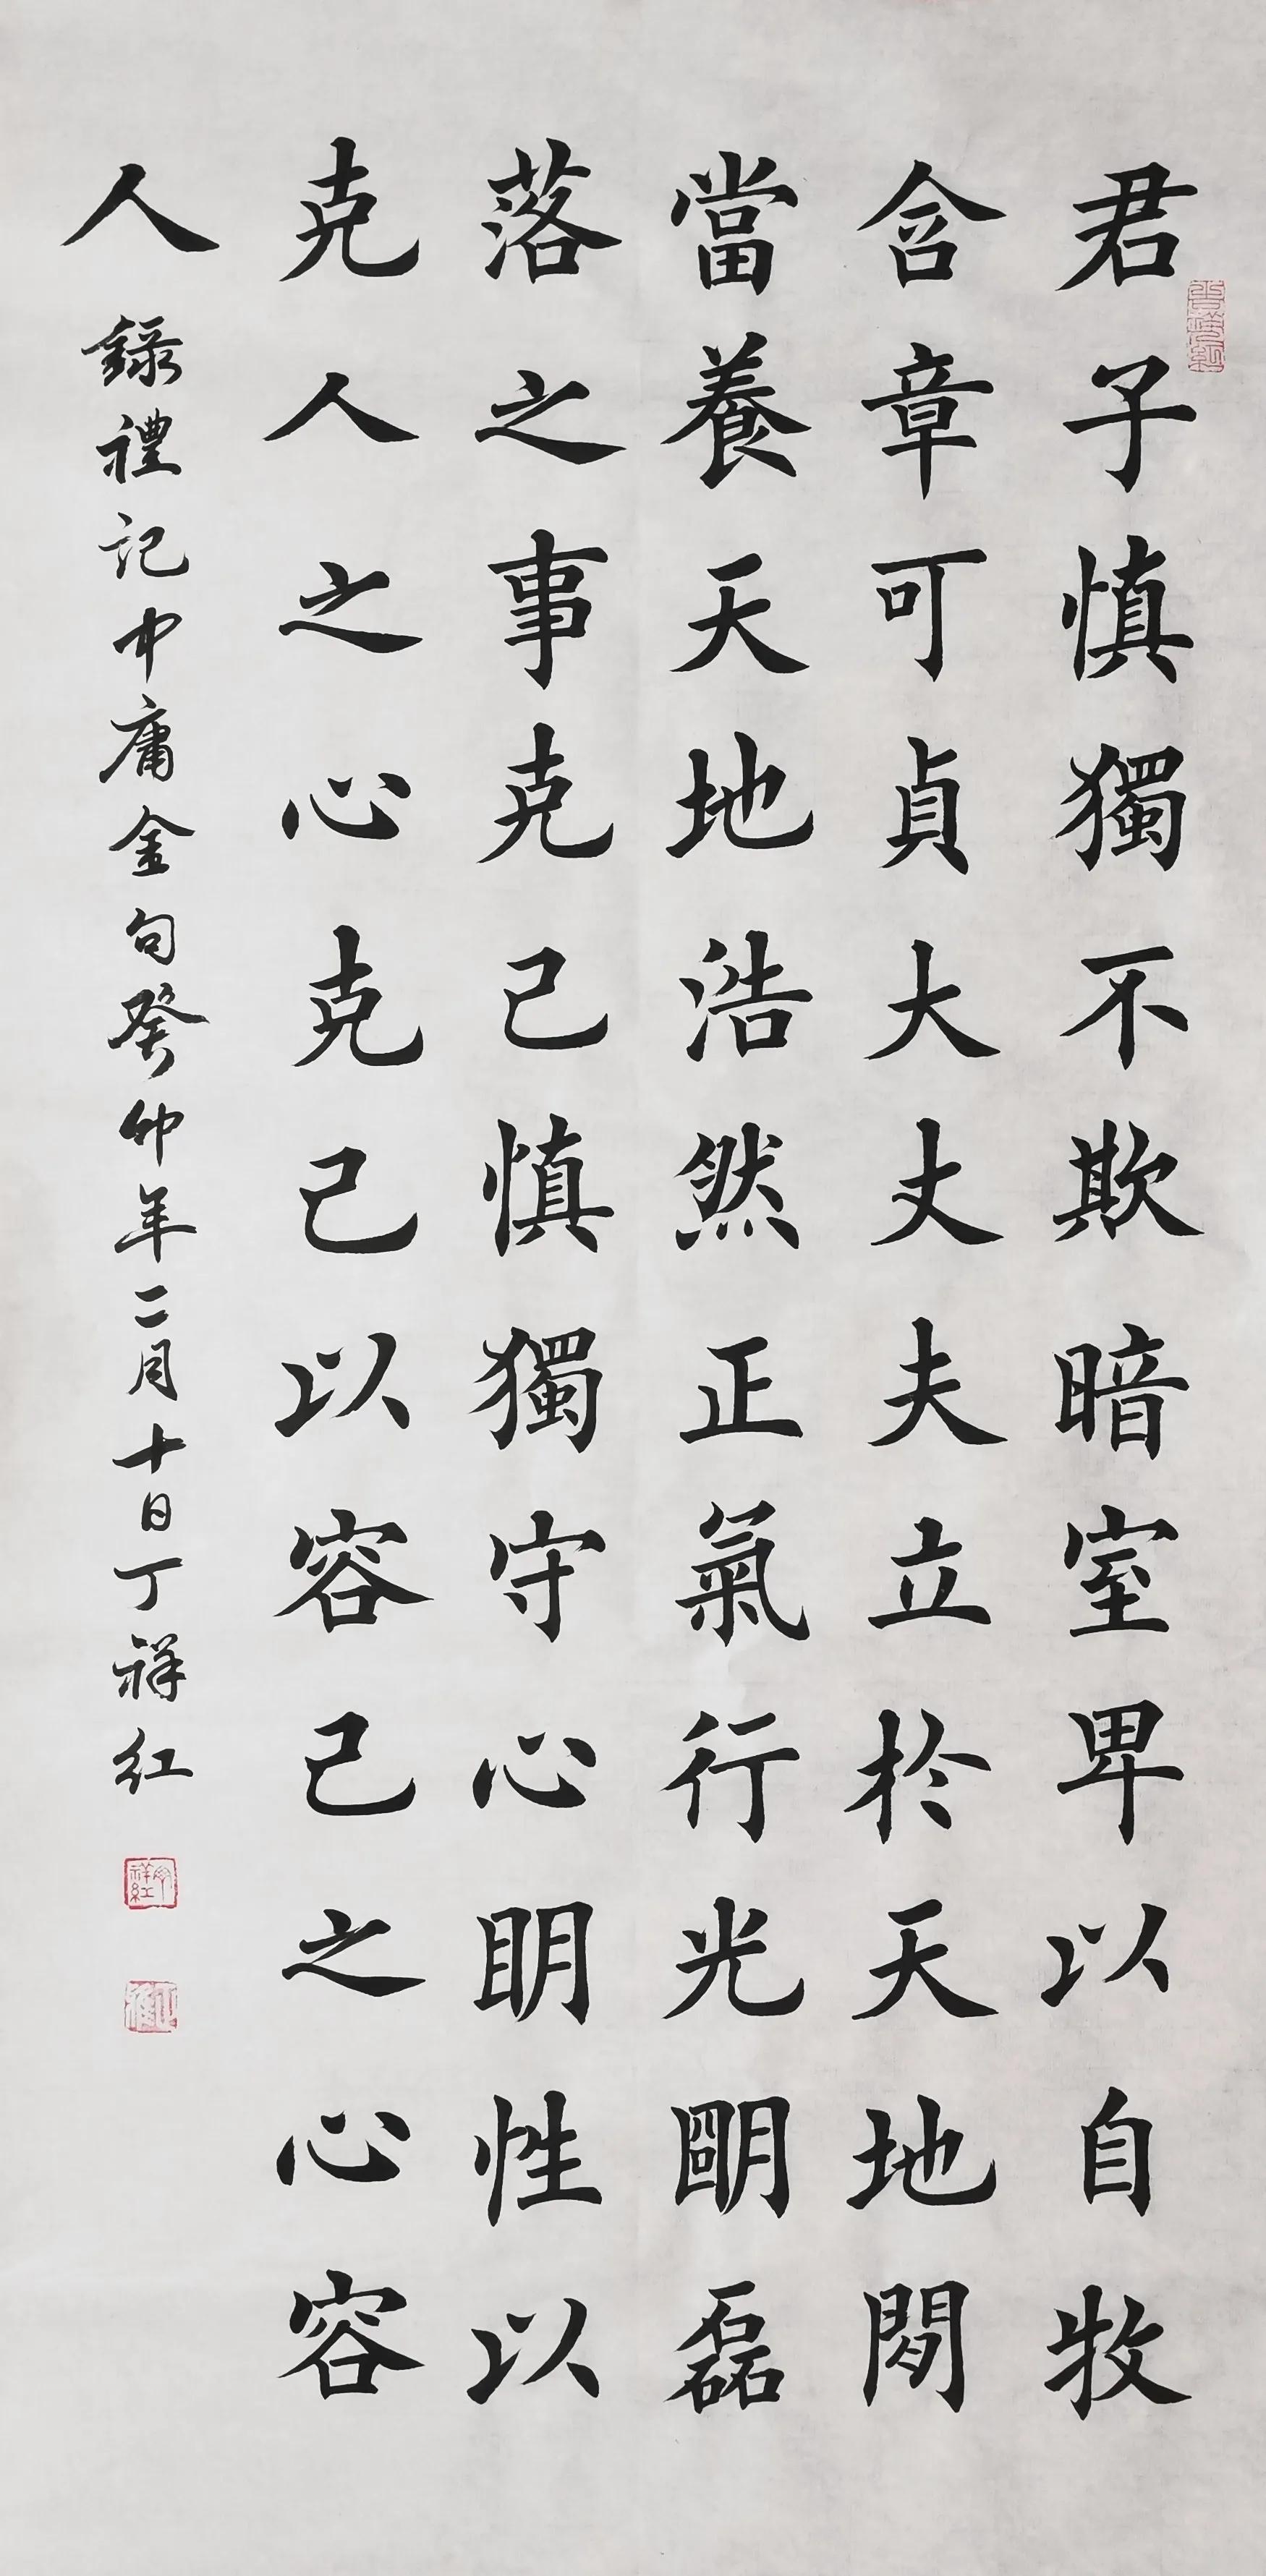 君子慎獨不欺暗室卑以自牧
含章可貞大丈夫立於天地間
當養天地浩然正氣行光明磊
落之事克己慎獨守心明性以
克人之心克己以容己之心容
人
錄禮記中庸金句癸卯年二月十日丁祥红